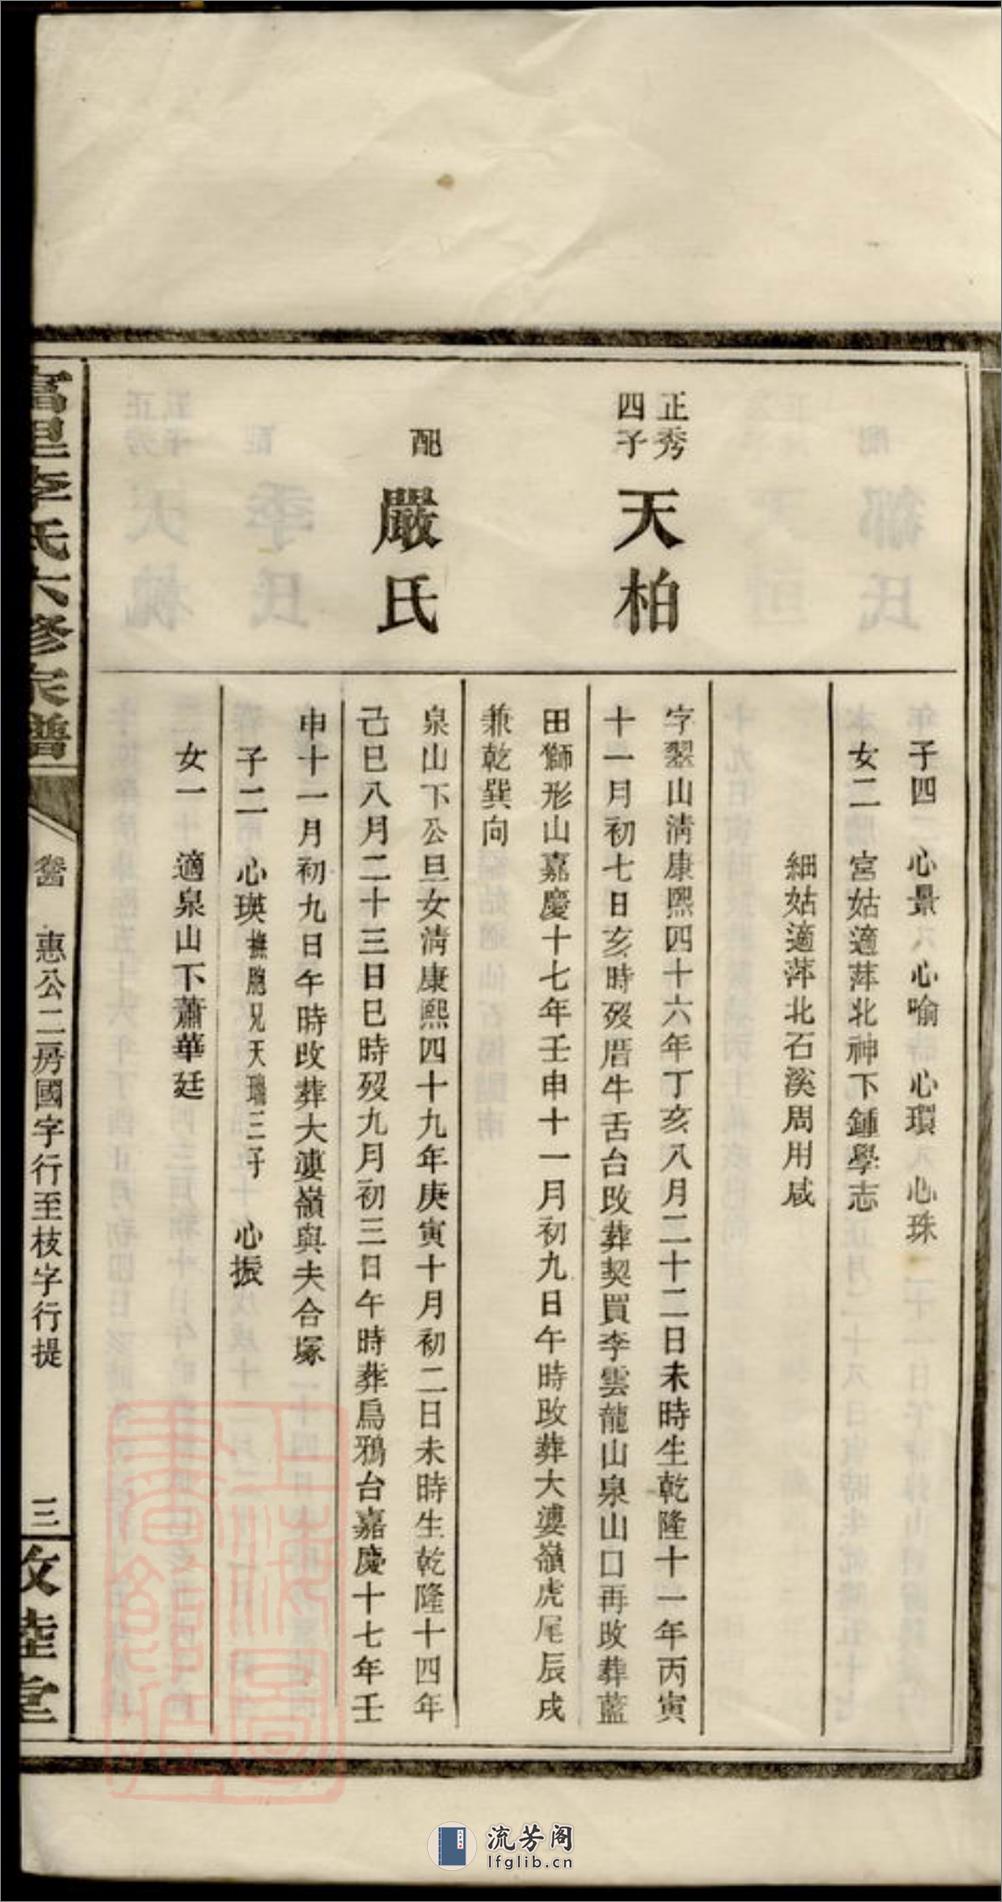 子四　心景　心喻　心環　心珠
女二　宮姑適萍北神下鍾學志
細姑適萍北石溪周用咸
正秀
四子
天柏
字翠山清康熙四十六年丁亥八月二十二日未時生乾隆十一年丙寅
十一月初七日亥時歿厝牛舌台改葬契買李雲龍山泉山口再改葬藍
田獅形山嘉慶十七年壬申十一月初九日午時改葬大婆嶺虎尾辰戌
兼乾巽向
配
嚴氏
泉山下公旦女清康熙四十九年庚寅十月初二日未時生乾隆十四年
己巳八月二十三日巳時歿九月初三日午時葬烏鴉台嘉慶十七年壬
申十一月初九日午時改葬大婆嶺與夫合塚
子二　心瑛撫胞兄天瑞三子　心振
女一　適泉山下蕭華廷
富里李氏六修宗譜
惠公二房國字行至枝字行提
三
敦睦堂
流芳阁
lfglib.cn